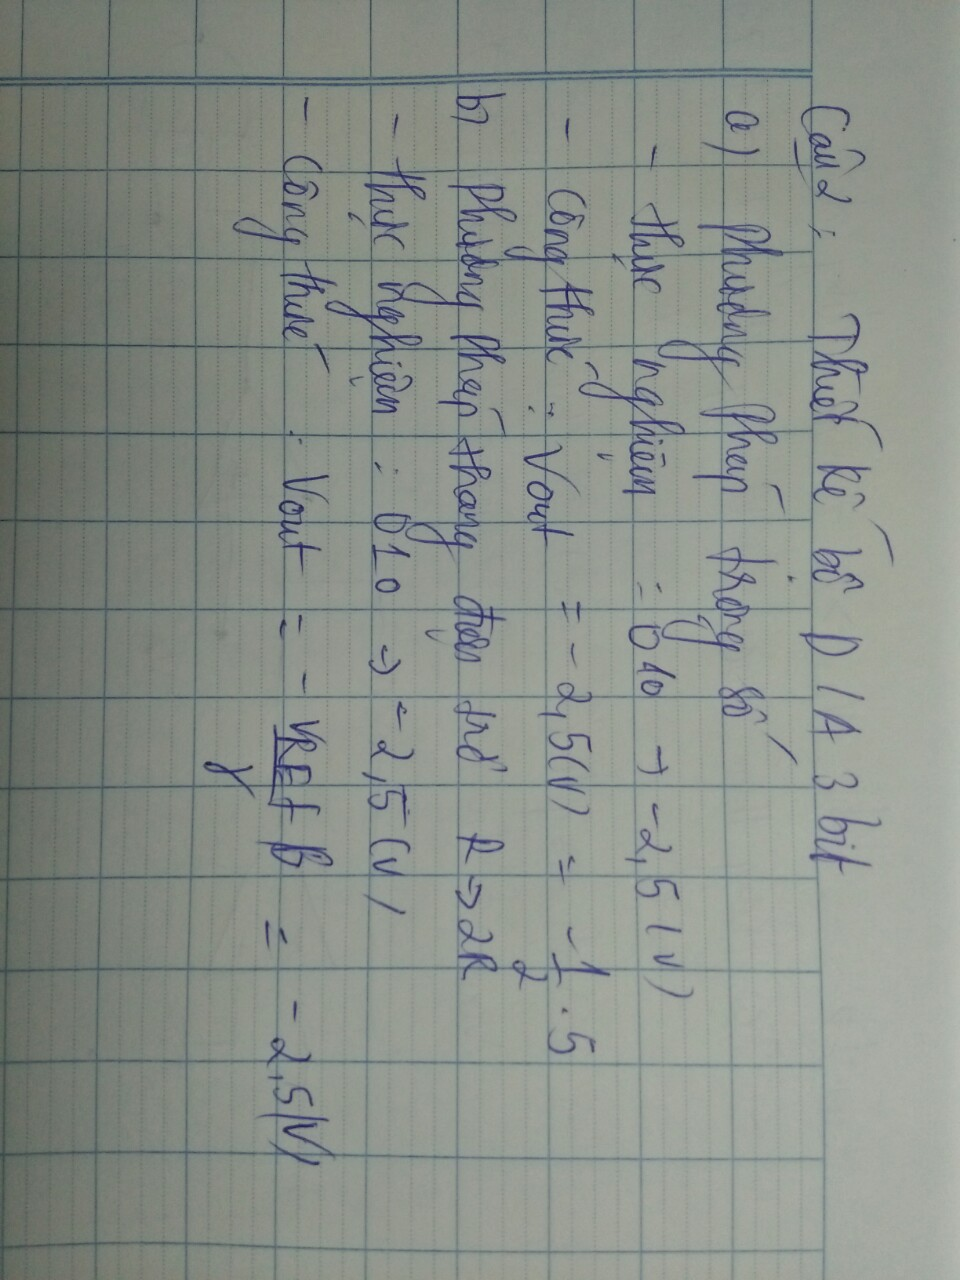 Câu 2: Thiết kế bộ D/A 3 bit
a) Phương pháp trọng số
- thực nghiệm : 010 → -2,5 (V)
- Công thức : Vout = -2,5(V) = -1/2 . 5
b) Phương pháp thang điện trở R → 2R
- thực nghiệm : 010 => -2,5 (V)
- Công thức : Vout = - VREF B / γ = -2,5(V)